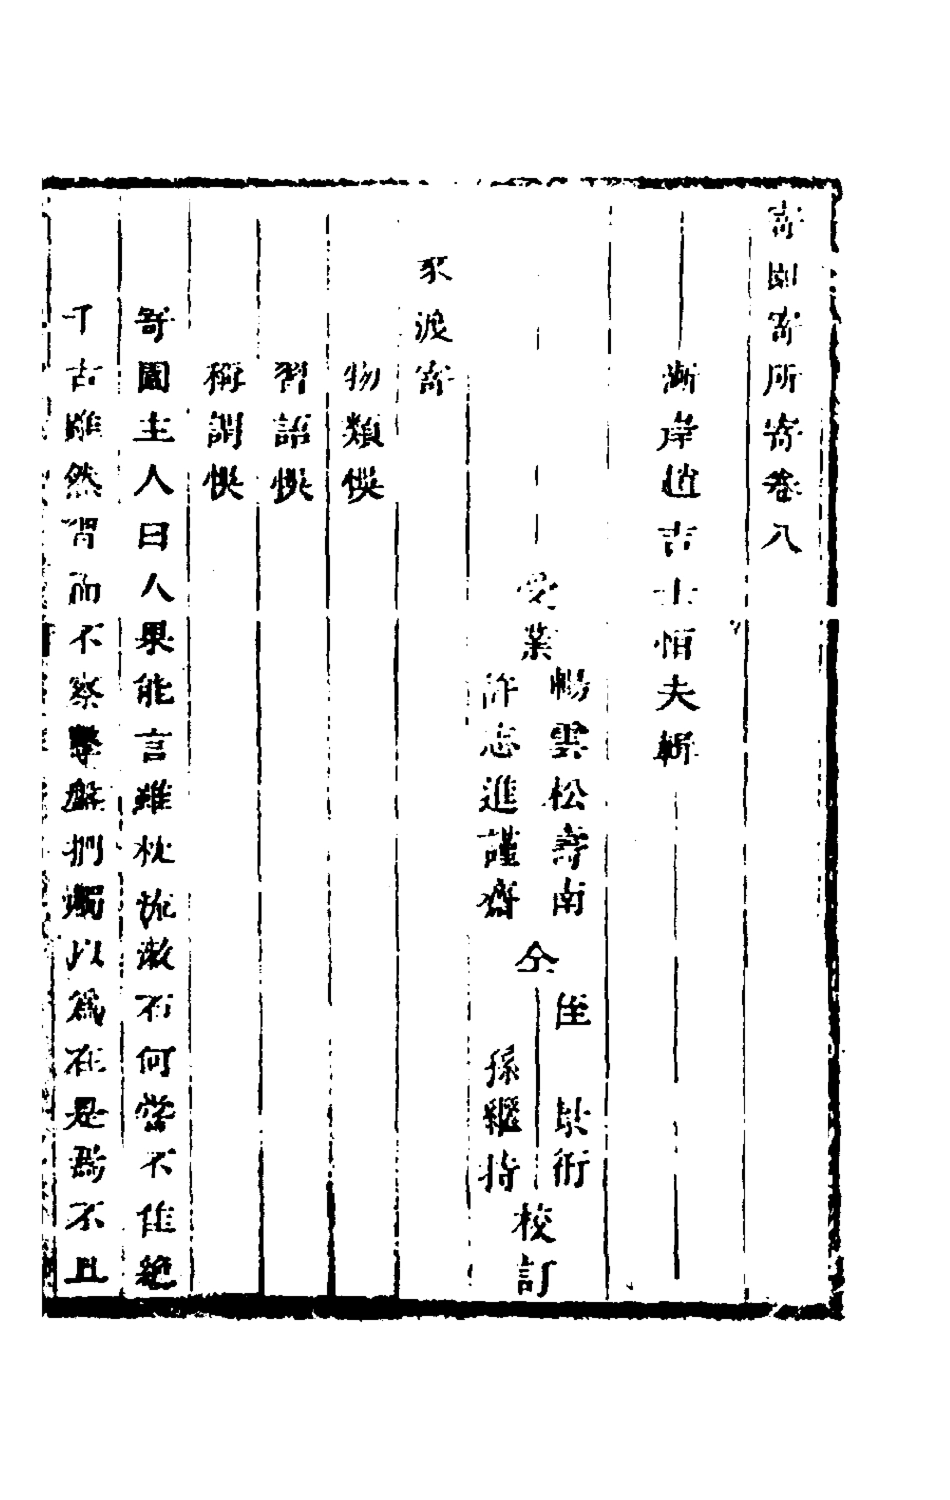 寄園寄所寄卷八
漸岸趙吉士恒夫輯
受業
暢雲松壽南
許志進謹齋
仝
侄 景衍
孫繼持
校訂
豕渡寄
物類悞
習語悞
稱謂悞
寄園主人曰人果能言雖枕流漱石何嘗不佳絕
千古雖然習而不察擊盤捫燭以為在是焉不且